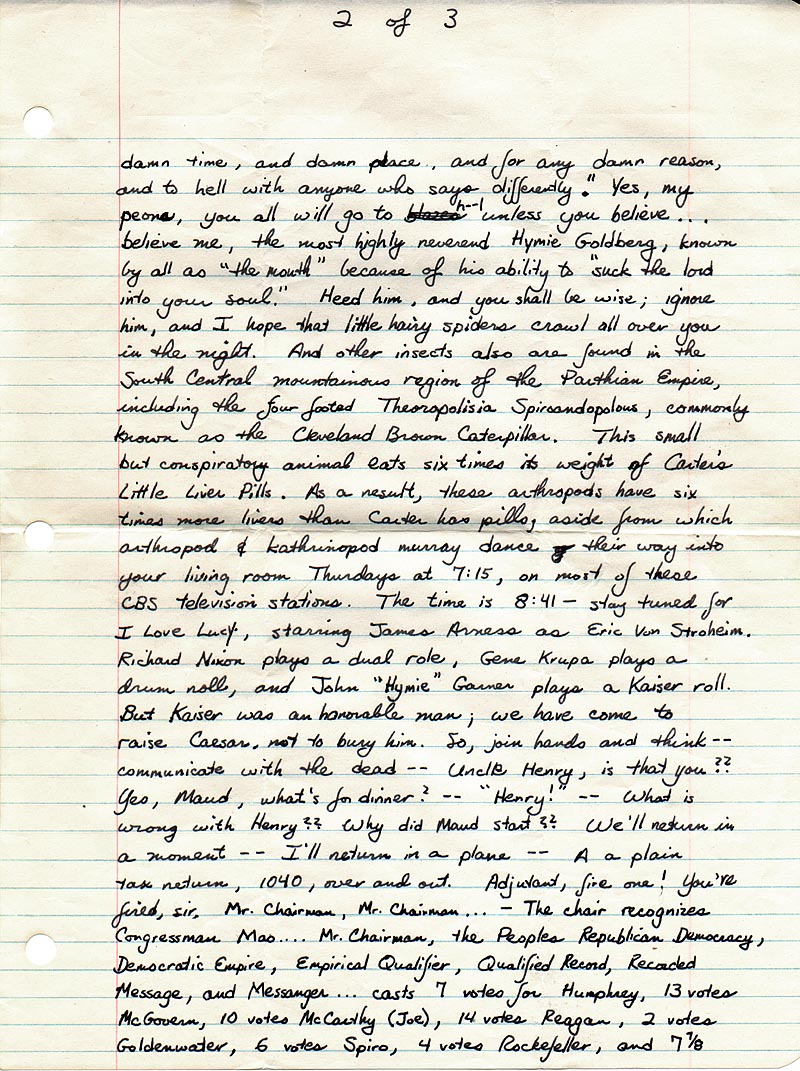 2 of 3
damn time, and damn place, and for any damn reason,
and to hell with anyone who says differently." Yes, my
peons, you all will go to h--l unless you believe...
believe me, the most highly reverend Hymie Goldberg, known
by all as "the mouth" because of his ability to "suck the lord
into your soul." Heed him, and you shall be wise; ignore
him, and I hope that little hairy spiders crawl all over you
in the night. And other insects also are found in the
South Central mountainous region of the Parthian Empire,
including the four footed Theoropolisia Spiroandopolous, commonly
known as the Cleveland Brown Caterpillar. This small
but conspiratory animal eats six times its weight of Carter's
Little Liver Pills. As a result, these arthropods have six
times more livers than Carter has pills, aside from which
arthropod & kathrinopod murray dance their way into
your living room Thurdays at 7:15, on most of these
CBS television stations. The time is 8:41 - stay tuned for
I Love Lucy, starring James Arness as Eric Von Stroheim.
Richard Nixon plays a dual role, Gene Krupa plays a
drum roll, and John "Hymie" Garner plays a Kaiser roll.
But Kaiser was an honorable man; we have come to
raise Caesar, not to bury him. So, join hands and think --
communicate with the dead -- Uncle Henry, is that you??
Yes, Maud, what's for dinner? -- "Henry!" -- What is
wrong with Henry?? Why did Maud start?? We'll return in
a moment -- I'll return in a plane -- A a plain
tax return, 1040, over and out. Adjutant, fire one! You've
fired, sir. Mr. Chairman, Mr. Chairman... - The chair recognizes
Congressman Mao.... Mr. Chairman, the Peoples Republican Democracy,
Democratic Empire, Empirical Qualifier, Qualified Record, Recorded
Message, and Messanger... casts 7 votes for Humphrey, 13 votes
McGovern, 10 votes McCarthy (Joe), 14 votes Reagan, 2 votes
Goldenwater, 6 votes Spiro, 4 votes Rockefeller, and 7 7/8